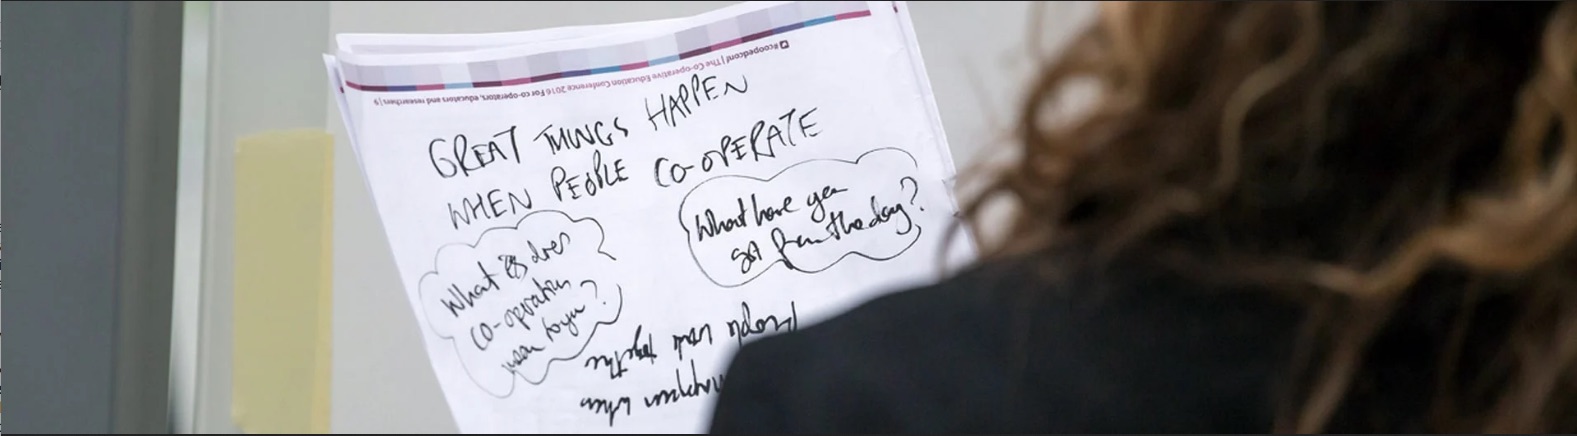 #coopedconf | The Co-operative Education Conference 2016 For co-operators, educators and researchers | 5
GREAT THINGS HAPPEN
WHEN PEOPLE CO-OPERATE
What have you
got from the day?
What is does
co-operation
mean to you?
People work together
happen when